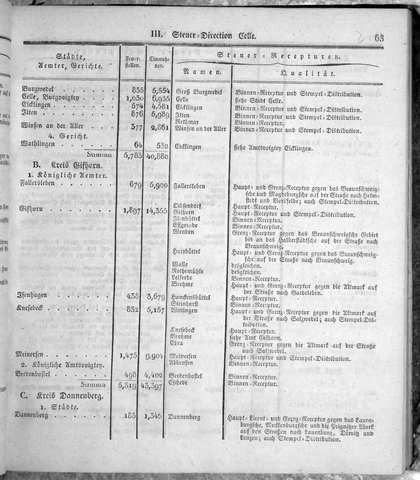 III. Steuer-Direction Celle. 63
Städte, Aemter, Gerichte. Feuerstellen. Einwohner Steuer-Recepturen.
Namen. Qualität.
Burgwedel 835 5,554 Groß Burgwedel Binnen-Receptur und Stempel-Distribution.
Celle, Burgvoigtey 1,030 6,935 Celle siehe Stadt Celle.
Eicklingen 674 4,581 Eicklingen Binnen-Receptur und Stempel-Distribution.
Ilten 876 5,989 Ilten Binnen-Receptur und Stempel-Distribution.
Rethmar Binnen-Receptur.
Winsen an der Aller 577 Winsen an der Aller Binnen-Receptur und Stempel-Distribution.
4. Gericht.
Wathlingen 64 532 siehe Amtsvoigtey Eicklingen.
Summa 5,785 40,880
B. Kreis Gifhorn.
1. Königliche Aemter.
Fallersleben 679 5,900 Fallersleben Haupt- und Grenz-Receptur gegen das Braunschweigische und Magdeburgische auf der Straße nach
und Vorsfelde; auch Stempel-Distribution.
Gifhorn 1,897 14,355 Binnen-Receptur.
Gifhorn Haupt-Receptur und Stempel-Distribution.
Isenbüttel Binnen-Receptur.
Binnen-Receptur.
Wenden Grenz-Receptur gegen das Braunschweigische Gebiet
bis an das Halberstädtsche auf der Straße nach
Braunschweig.
Haupt- und Grenz-Receptur gegen das Braunschweigische auf der Straße nach Braunschweig.
Walle desgleichen.
Rothemühle desgleichen.
Leiferde Binnen-Receptur.
Brohme Haupt- und Grenz-Receptur gegen die Altmark auf
der Straße nach Gardelegen.
Isenhagen 438 3,679 Hankensbüttel Binnen-Receptur.
Steinhorst Binnen-Receptur.
Knesebeck 832 5,157 Wittingen Haupt- und Grenz-Receptur gegen die Altmark auf
der Straße nach Salzwedel; auch Stempel-Distribution.
Knesebeck Haupt-Receptur.
Brohme siehe Amt Gifhorn.
Grenz-Receptur gegen die Altmark auf der Straße
nach Salzwedel.
Meinersen 1,475 9,904 Meinersen Haupt-Receptur und Stempel-Distribution.
Binnen-Receptur.
2. Königliche Amtsvoigtey.
Bedenbostel 498 4,402 Bedenbostel Binnen-Receptur.
Eschede Binnen-Receptur.
Summa 5,819 43,397
C. Kreis Dannenberg.
1. Städte.
Dannenberg 183 1,546 Dannenberg Haupt-Licent- und Grenz-Receptur gegen das Lauenburgische, Mecklenburgische und die Prignitzer Mark
auf der Straßen nach Lauenburg, Dömitz und
Lenzen; auch Stempel-Distribution.